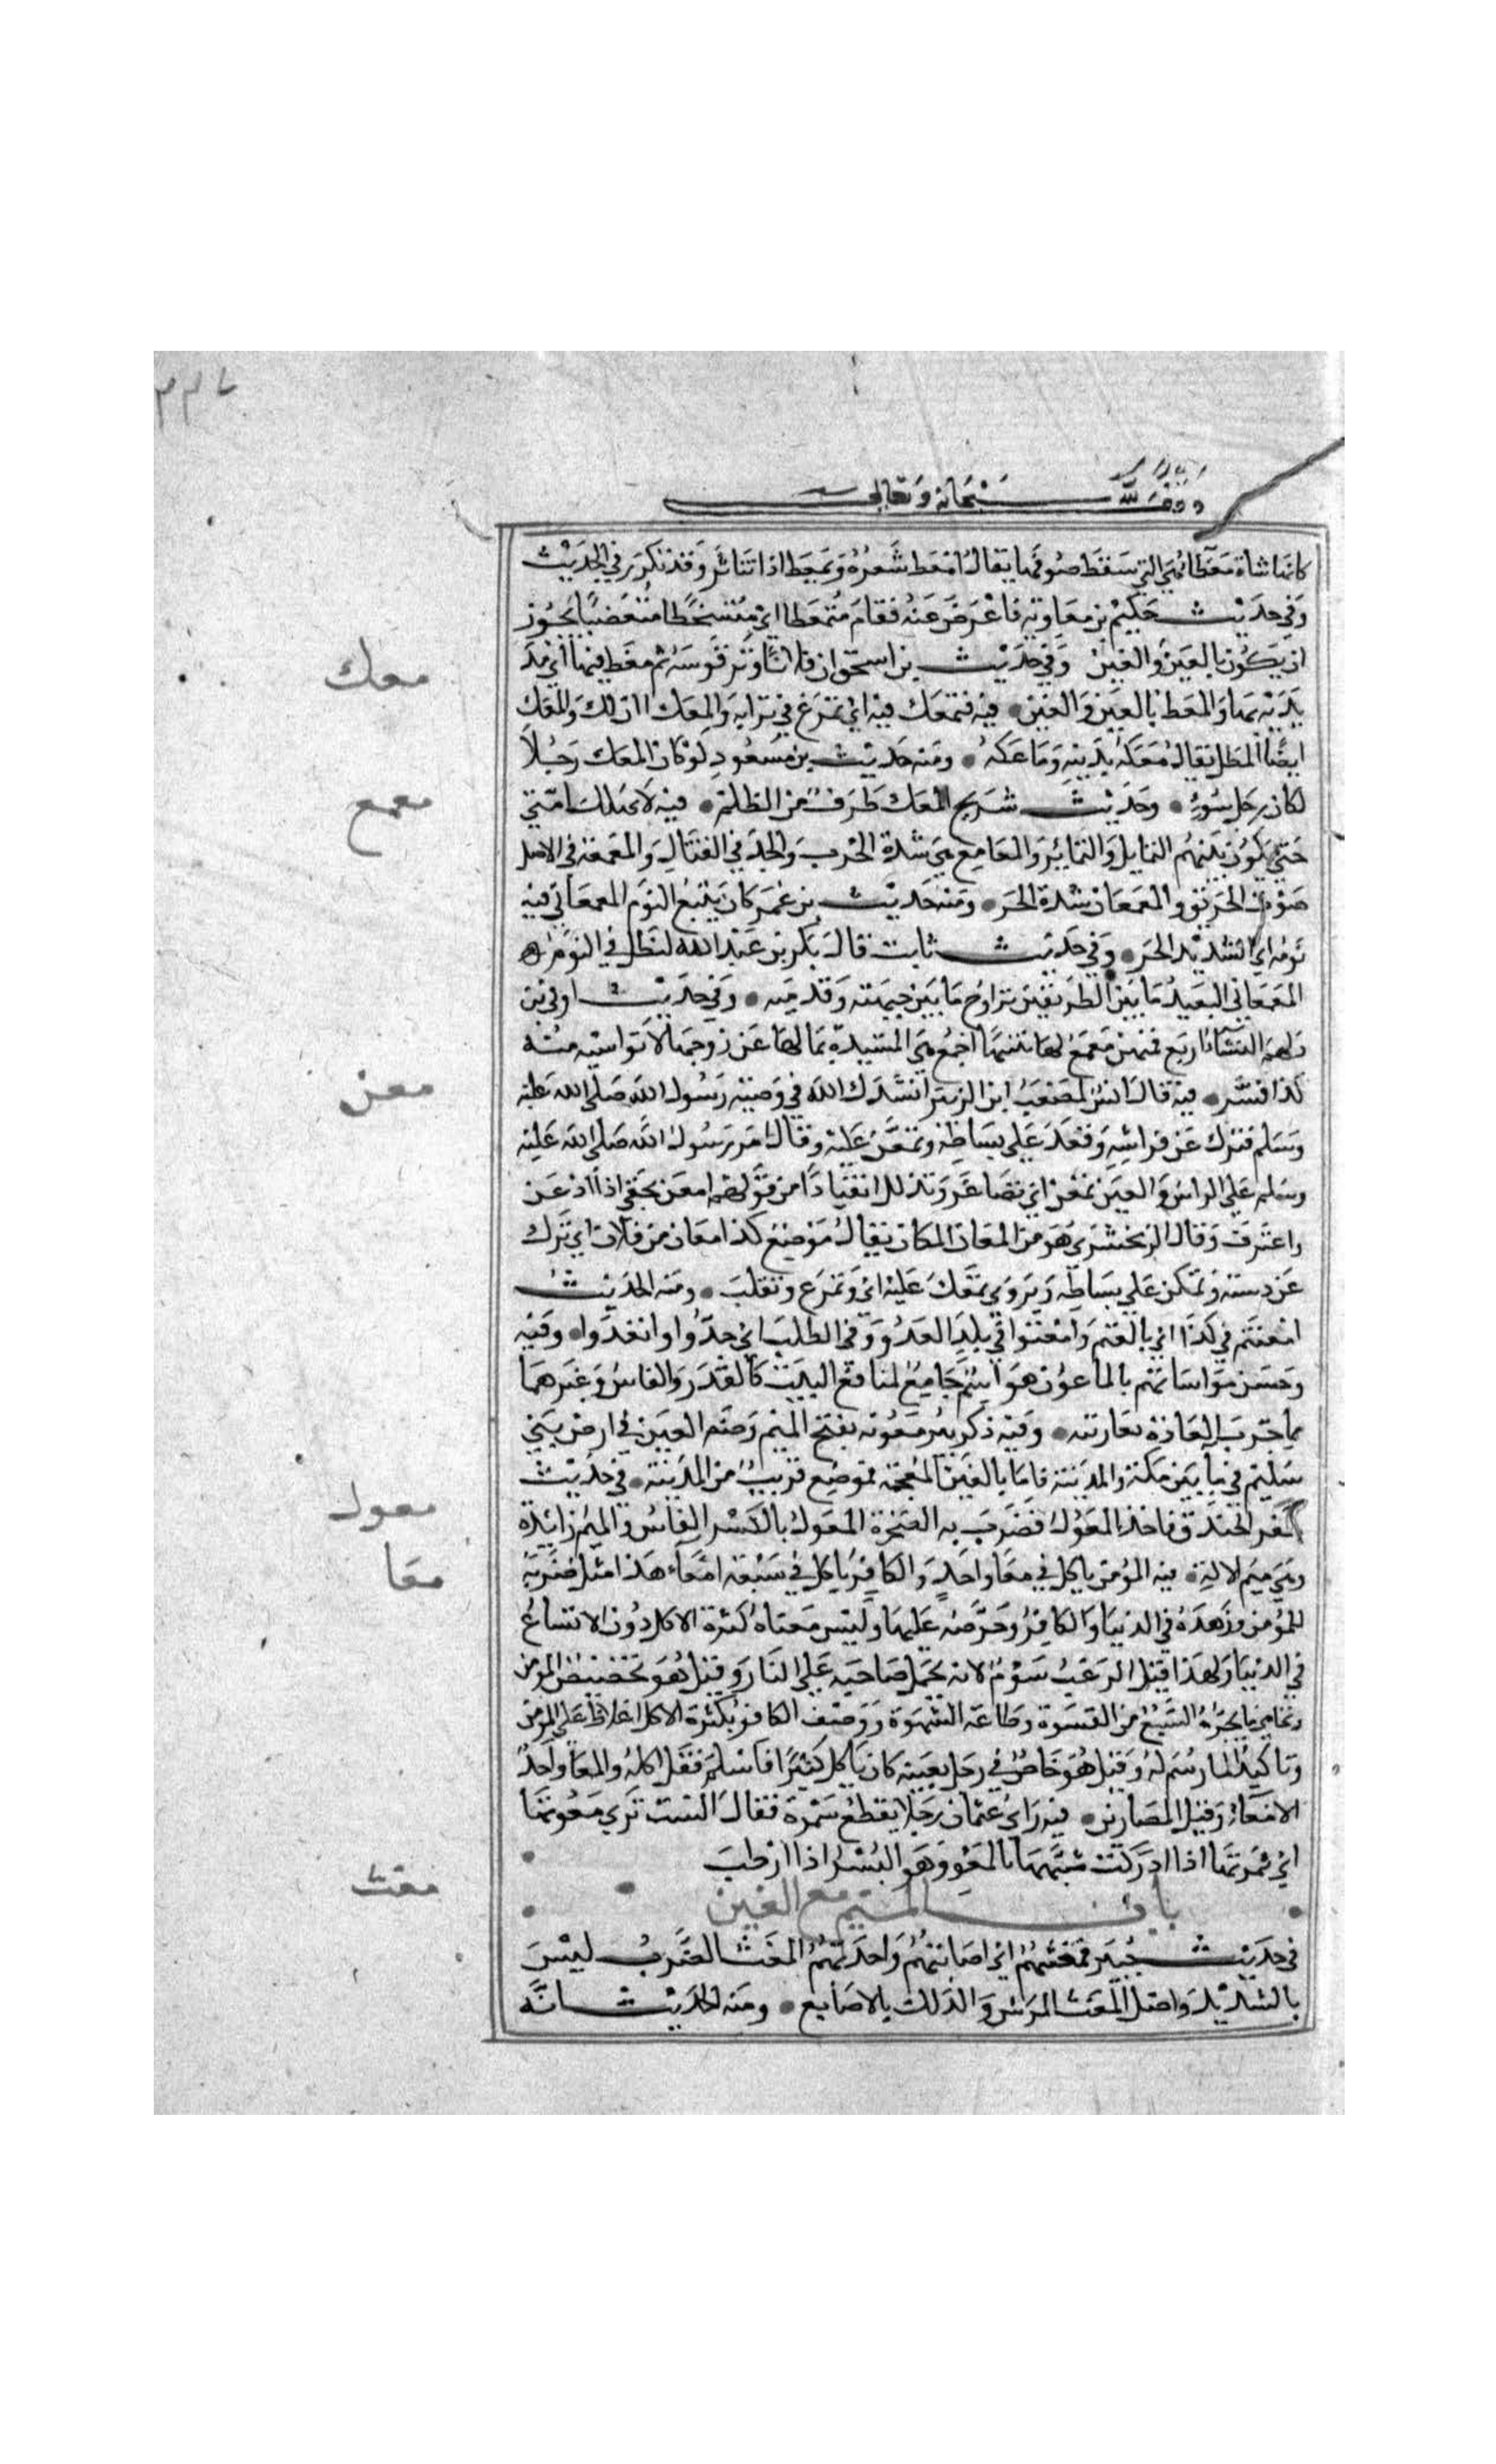 وقف لله سبحانه وتعالى
كانها شاة معطا هي التي سقط صوفها يقال امعط شعره وتمعط اذا تناثر وقد تكرر في الحديث
وفي حديث حكيم بن معاوية فاعرض عنه فقام متمعطا اي متسخطا متغضبا يجوز
ان يكون بالعين والغين وفي حديث بن اسحق ان فلانا وتر قوسه ثم معط فيها اي مد
يديه بها والمعط بالعين والغين فيه فتمعك فيه اي تمرغ في ترابه والمعك الدلك والمعك
معك
ايضا المطل يقال معكه بدينه وماعكه ومنه حديث بن مسعود لو كان المعك رجلا
لكان رجل سوء وحديث شريح المعك طرف من الظلم فيه لا تهلك امتي
معمع
حتى يكون بينهم التمايل والتمايز والمعامع هي شدة الحرب والجد في القتال والمعمعة في الاصل
صوت الحريق والمعمعان شدة الحر ومنه حديث بن عمر كان يتبع اليوم المعمعاني فيه
نومه اي الشديد الحر وفي حديث ثابت قال بكر بن عبد الله لنظل في اليوم
المعمعاني البعيد ما بين الطرفين يراوح ما بين جبهته وقدميه وفي حديث اوفى بن
دلهم النساء اربع فمنهن معمع لها شيئها اجمع هي المستبدة بمالها عن زوجها لا تواسيه منه
كذا فسر فيه قال انس لمصعب ابن الزبير انشدك الله في وصية رسول الله صلى الله عليه
معن
وسلم فنزل عن فراشه وقعد على بساطه وتمعن عليه وقال امر رسول الله صلى الله عليه
وسلم على الراس والعين تمعن اي تصاغر وتذلل انقيادا من قولهم امعن بحقي اذا اذعن
واعترف وقال الزمخشري هو من المعان المكان يقال موضع كذا معان من فلان اي نزل
عن دسته وتمكن على بساطه ويروى تمعك عليه اي وتمرغ وتقلب ومنه الحديث
امعنتم في كذا اي بالغتم وامعنوا في بلد العدو وفي الطلب اي جدوا وابعدوا وفيه
وحسن مواساتهم بالماعون هو اسم جامع لمنافع البيت كالقدر والفاس وغيرهما
مما جرت العادة بعاريته وفيه ذكر بير معونة بفتح الميم وضم العين في ارض بني
سليم فيما بين مكة والمدينة فاما بالغين المعجمة فموضع قريب من المدينة في حديث
حفر الخندق فاخذ المعول فضرب به الصخرة المعول بالكسر الفاس والميم زائدة
معول
وهي ميم الالة فيه المؤمن ياكل في معا واحد والكافر ياكل في سبعة امعاء هذا مثل ضربه
معا
للمؤمن وزهده في الدنيا والكافر وحرصه عليها وليس معناه كثرة الاكل دون الاتساع
في الدنيا ولهذا قيل الرغب شؤم لانه يحمل صاحبه على النار وقيل هو تخصيص للمومن
وتحامي ما يجره الشبع من القسوة وطاعة الشهوة ووصف الكافر بكثرة الاكل اغلاظ على المومن
وتاكيد لما رسم له وقيل هو خاص في رجل بعينه كان ياكل كثيرا فاسلم فقل اكله والمعا واحد
الامعاء وقيل المصارين فيه راى عثمان رجلا يقطع سمرة فقال الست ترعى معوتها
اي ثمرتها اذا ادركت شبهها بالمعو وهو البسر اذا ارطب
باب الميم مع الغين
مغث
في حديث خيبر فمغثتهم اي اصابتهم واخذتهم المغث الضرب ليس
بالشديد واصل المغث المرس والدلك بالاصابع ومنه الحديث انه